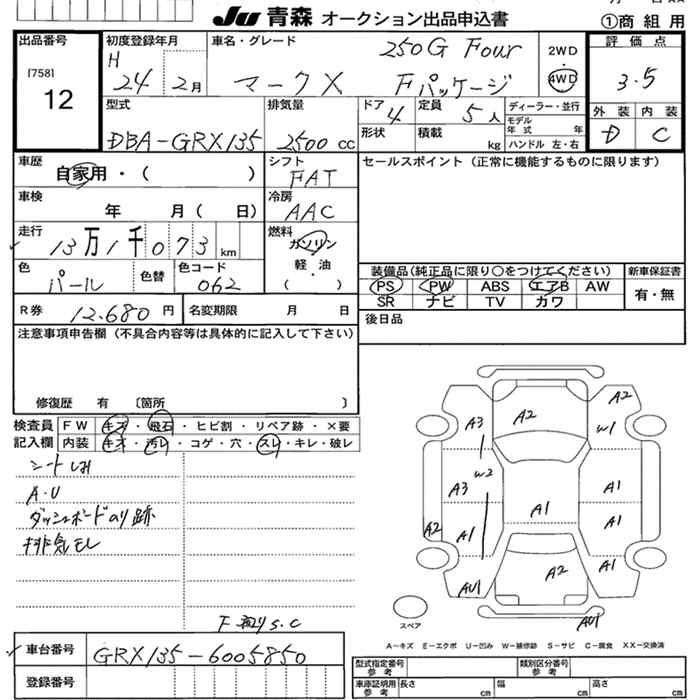 Ju 青森 オークション出品申込書
①商 組 用
出品番号
[758]
12
初度登録年月
H
24 2月
車名・グレード
250G Four
マークX Fパッケージ
2WD
・
4WD
評価点
3.5
外装 内装
D C
型式
DBA-GRX135
排気量
2500 CC
ドア
4
定員
5人
ディーラー・並行
モデル
年式 年
形状
積載
kg
ハンドル 左・右
車歴
自家用・( )
シフト
FAT
セールスポイント (正常に機能するものに限ります)
車検
年 月( 日)
冷房
AAC
走行
13万1千073km
燃料
ガソリン
軽・油
( )
色
パール
色替
色コード
062
装備品(純正品に限り○をつけてください)
新車保証書
PS PW ABS エアB AW
SR ナビ TV カワ
有・無
R券
12,680 円
名変期限 月 日
後日品
注意事項申告欄 (不具合内容等は具体的に記入して下さい)
修復歴 有 〔箇所 〕
検査員
記入欄
FW キズ・飛石・ヒビ割・リペア跡・×要
内装 キズ・汚レ・コゲ・穴・スレ・キレ・破レ
シートしみ
A・U
ダッシュボードのり跡
排気モレ
A2
A2
A3
W1
W2
A3
A1
A1
A2
A1
A1
A2
A1
AU1
AU1
スペア
A-キズ E-エクボ U-凹み W-補修跡 S-サビ C-腐食 XX-交換済
車台番号
GRX135-6005850
登録番号
型式指定番号
参考
類別区分番号
参考
車庫証明用
参考
長さ cm
幅 cm
高さ cm